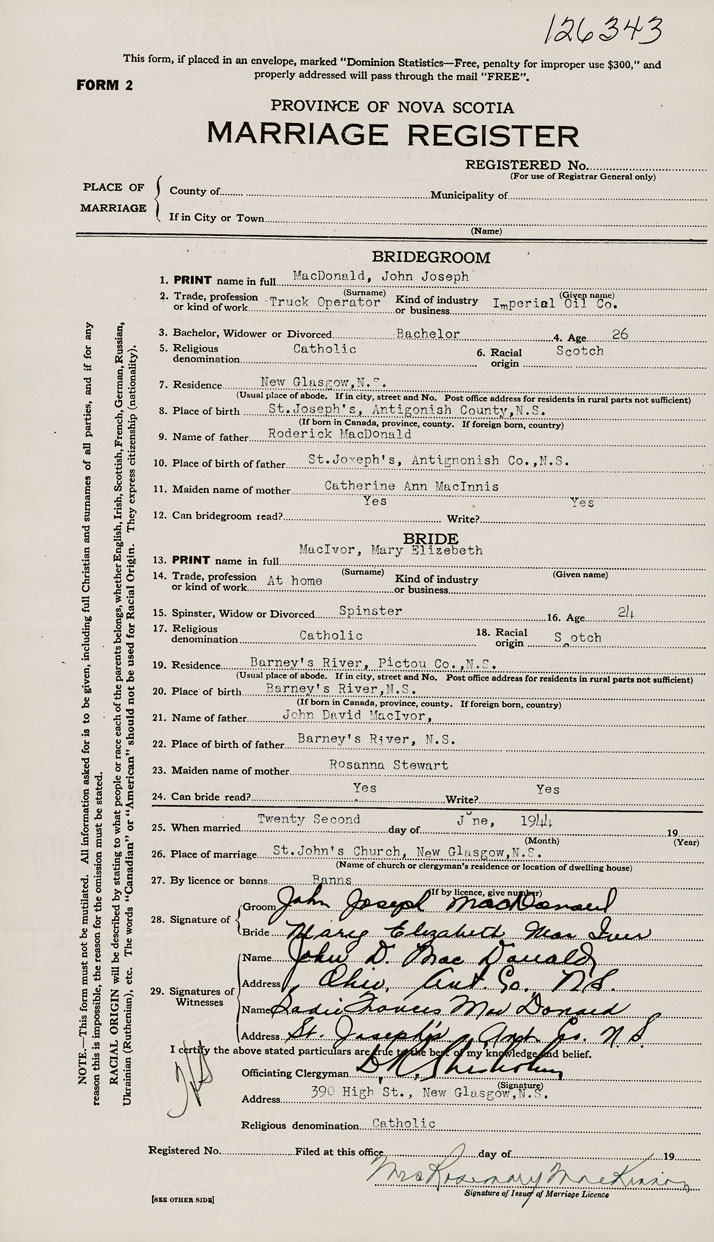 126343
This form, if placed in an envelope, marked "Dominion Statistics—Free, penalty for improper use $300," and
properly addressed will pass through the mail "FREE".
FORM 2
PROVINCE OF NOVA SCOTIA
MARRIAGE REGISTER
REGISTERED No.
(For use of Registrar General only)
PLACE OF MARRIAGE
County of Municipality of
If in City or Town
(Name)
BRIDEGROOM
1. PRINT name in full MacDonald, John Joseph
(Surname) (Given name)
2. Trade, profession or kind of work Truck Operator Kind of industry or business Imperial Oil Co.
3. Bachelor, Widower or Divorced Bachelor 4. Age 26
5. Religious denomination Catholic 6. Racial origin Scotch
7. Residence New Glasgow,N.S.
(Usual place of abode. If in city, street and No. Post office address for residents in rural parts not sufficient)
8. Place of birth St.Joseph's, Antigonish County,N.S.
(If born in Canada, province, county. If foreign born, country)
9. Name of father Roderick MacDonald
10. Place of birth of father St.Joseph's, Antignonish Co.,N.S.
11. Maiden name of mother Catherine Ann MacInnis
12. Can bridegroom read? Yes Write? Yes
BRIDE
13. PRINT name in full MacIvor, Mary Elizebeth
(Surname) (Given name)
14. Trade, profession or kind of work At home Kind of industry or business
15. Spinster, Widow or Divorced Spinster 16. Age 24
17. Religious denomination Catholic 18. Racial origin Scotch
19. Residence Barney's River, Pictou Co.,N.S.
(Usual place of abode. If in city, street and No. Post office address for residents in rural parts not sufficient)
20. Place of birth Barney's River,N.S.
(If born in Canada, province, county. If foreign born, country)
21. Name of father John David MacIvor,
22. Place of birth of father Barney's River, N.S.
23. Maiden name of mother Rosanna Stewart
24. Can bride read? Yes Write? Yes
25. When married Twenty Second day of June, 1944 19
(Month) (Year)
26. Place of marriage St.John's Church, New Glasgow,N.S.
(Name of church or clergyman's residence or location of dwelling house)
27. By licence or banns Banns
(If by licence, give number)
28. Signature of Groom John Joseph MacDonald
Bride Mary Elizabeth Mac Iver
29. Signatures of Witnesses Name John D. Mac Donald
Address Ohio, Ant. Co. N.S.
Name Sadie Frances Mac Donald
Address St. Joseph's Ant. Co. N S
I certify the above stated particulars are true to the best of my knowledge and belief.
Officiating Clergyman D. R. Chisholm
(Signature)
Address 390 High St., New Glasgow,N.S.
Religious denomination Catholic
Registered No. Filed at this office day of 19
Mrs Rosemary MacKinnon
Signature of Issuer of Marriage Licence
[SEE OTHER SIDE]
NOTE.—This form must not be mutilated. All information asked for is to be given, including full Christian and surnames of all parties, and if for any
reason this is impossible, the reason for the omission must be stated.
RACIAL ORIGIN will be described by stating to what people or race each of the parents belongs, whether English, Irish, Scottish, French, German, Russian,
Ukrainian (Ruthenian), etc. The words "Canadian" or "American" should not be used for Racial Origin. They express citizenship (nationality).